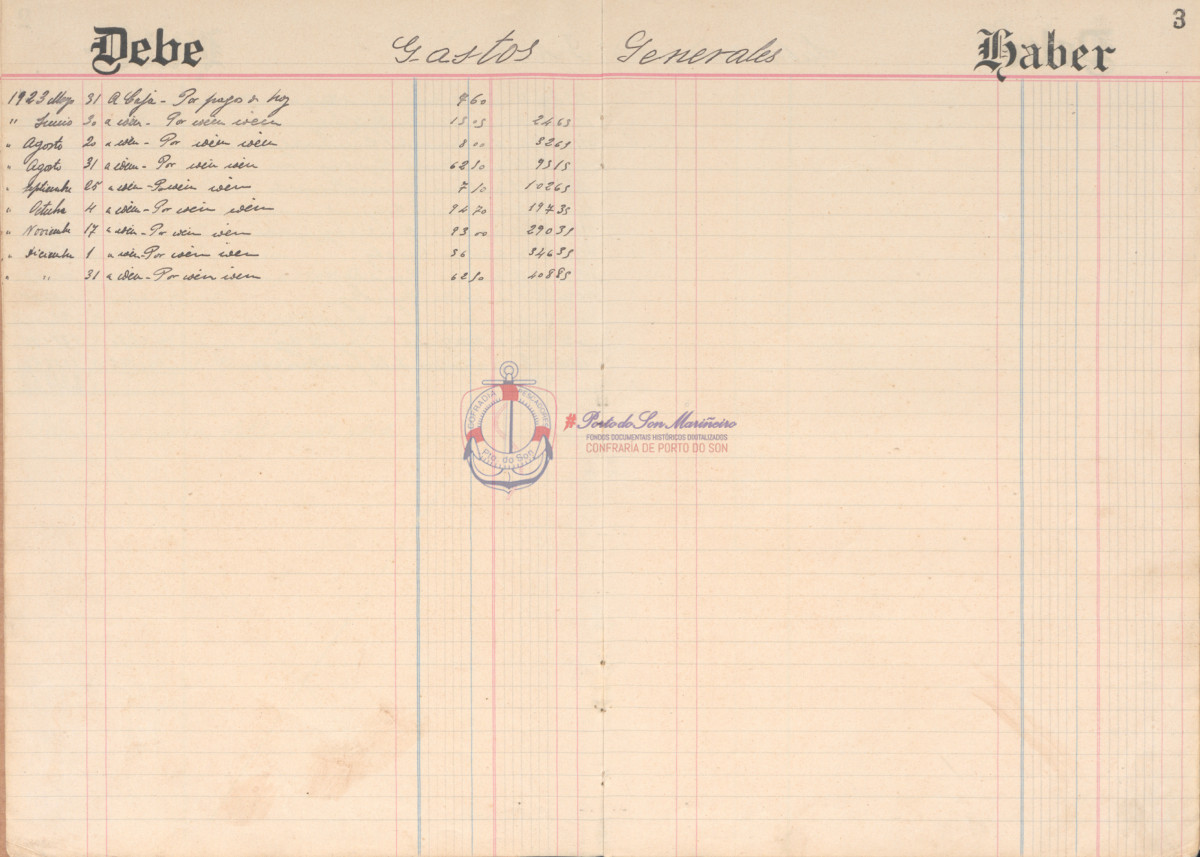 3
Debe Gastos Generales Haber
1923 Mayo 31 A Caja - Por pago de hoy 9 60
" Junio 30 a idem - Por idem idem 15 05 2465
" Agosto 20 a idem - Por idem idem 8 00 3265
" Agosto 31 a idem - Por idem idem 62 50 9515
" Septiembre 25 a idem - Por idem idem 7 50 10265
" Octubre 4 a idem - Por idem idem 94 70 19735
" Noviembre 17 a idem - Por idem idem 93 00 29035
" Diciembre 1 a idem - Por idem idem 56 34635
" " 31 a idem - Por idem idem 62 50 40885
COFRADIA PESCADORES
Pto. do Son
#Porto do Son Mariñeiro
FONDOS DOCUMENTAIS HISTÓRICOS DIXITALIZADOS
CONFRARÍA DE PORTO DO SON